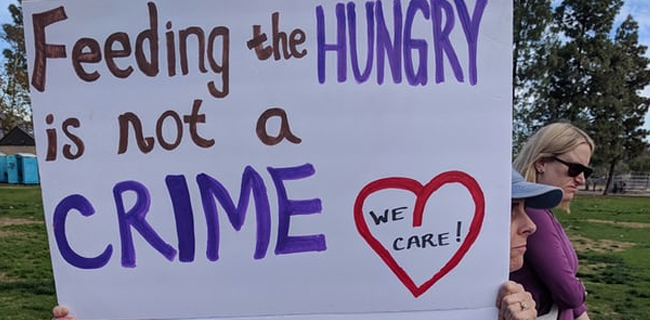 Feeding the HUNGRY
is not a
CRIME
WE
CARE!